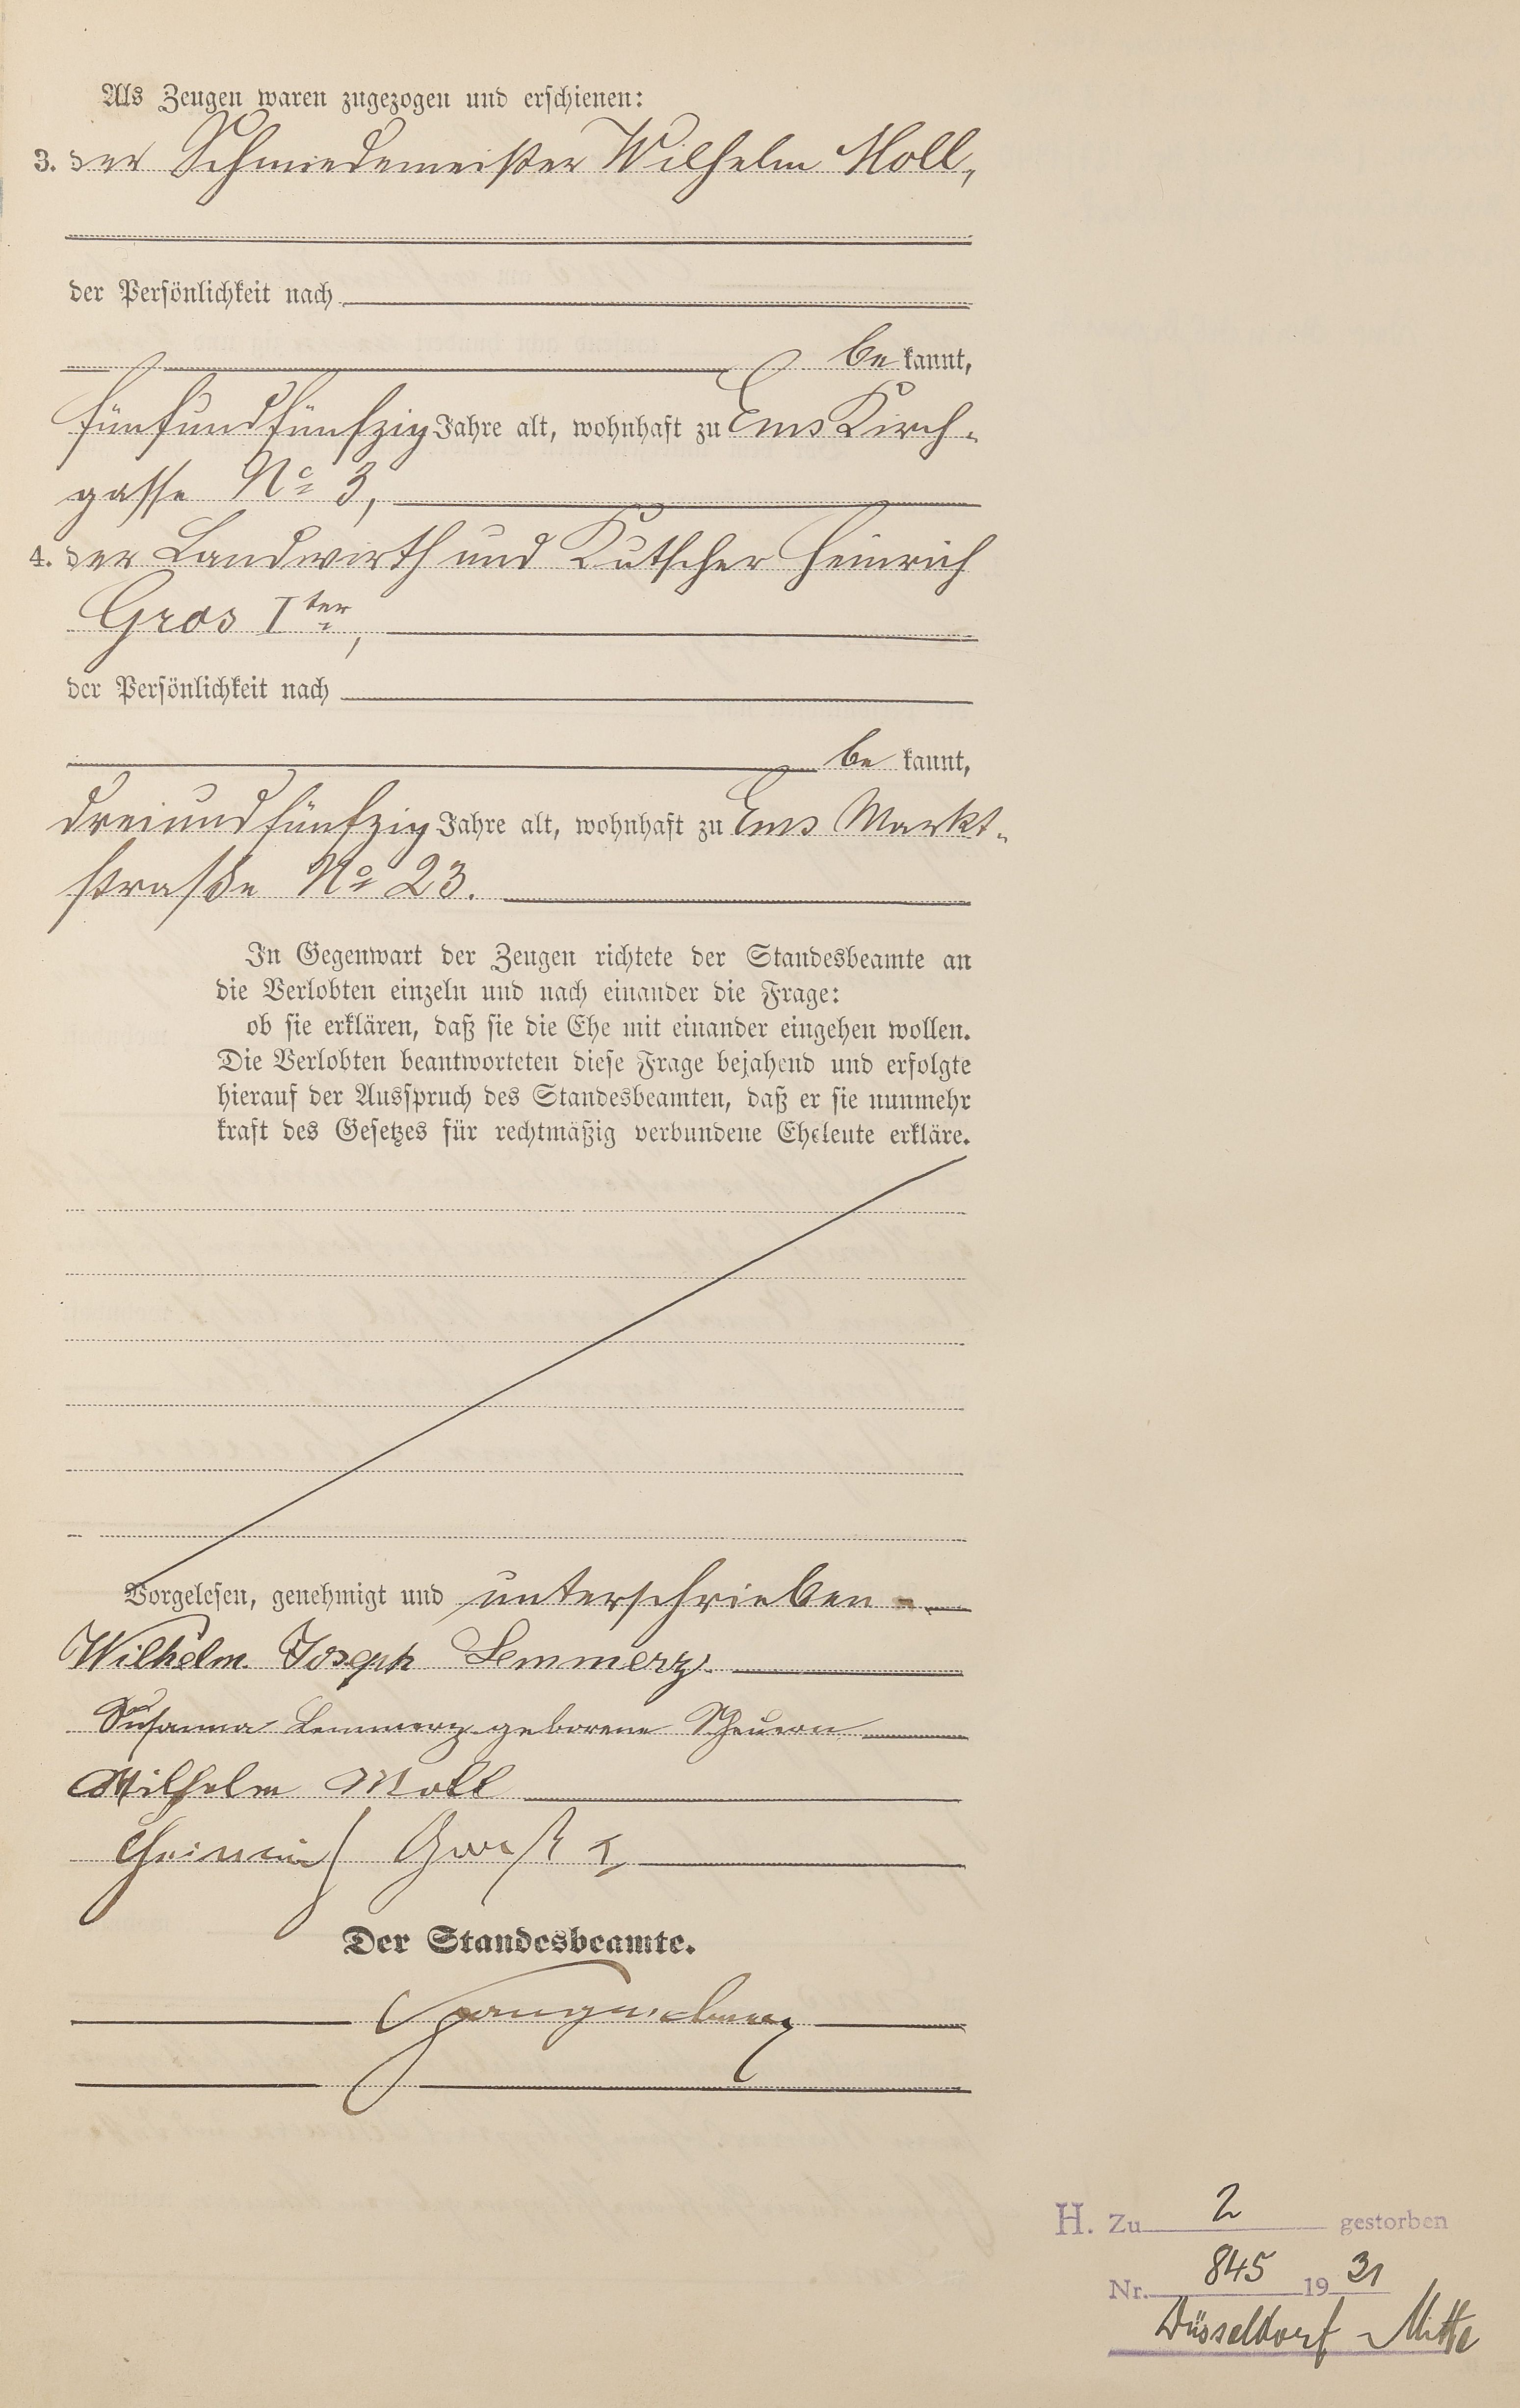 Als Zeugen waren zugezogen und erschienen:
3. der Schmiedemeister Wilhelm Moll,
der Persönlichkeit nach
be kannt,
fünfundfünfzig Jahre alt, wohnhaft zu Ems Kirch-
gasse No 3,
4. der Landwirth und Kutscher Heinrich
Gros Iter,
der Persönlichkeit nach
be kannt,
dreiundfünfzig Jahre alt, wohnhaft zu Ems Markt-
straße No 23.
In Gegenwart der Zeugen richtete der Standesbeamte an
die Verlobten einzeln und nach einander die Frage:
ob sie erklären, daß sie die Ehe mit einander eingehen wollen.
Die Verlobten beantworteten diese Frage bejahend und erfolgte
hierauf der Ausspruch des Standesbeamten, daß er sie nunmehr
kraft des Gesetzes für rechtmäßig verbundene Eheleute erkläre.
Vorgelesen, genehmigt und unterschrieben
Wilhelm Joseph Lemmerz
Susanna Lemmerz geborene Scheuern
Wilhelm Moll
Heinrich Groß I
Der Standesbeamte.
H. Zu 2 gestorben
Nr. 845 1931
Düsseldorf-Mitte